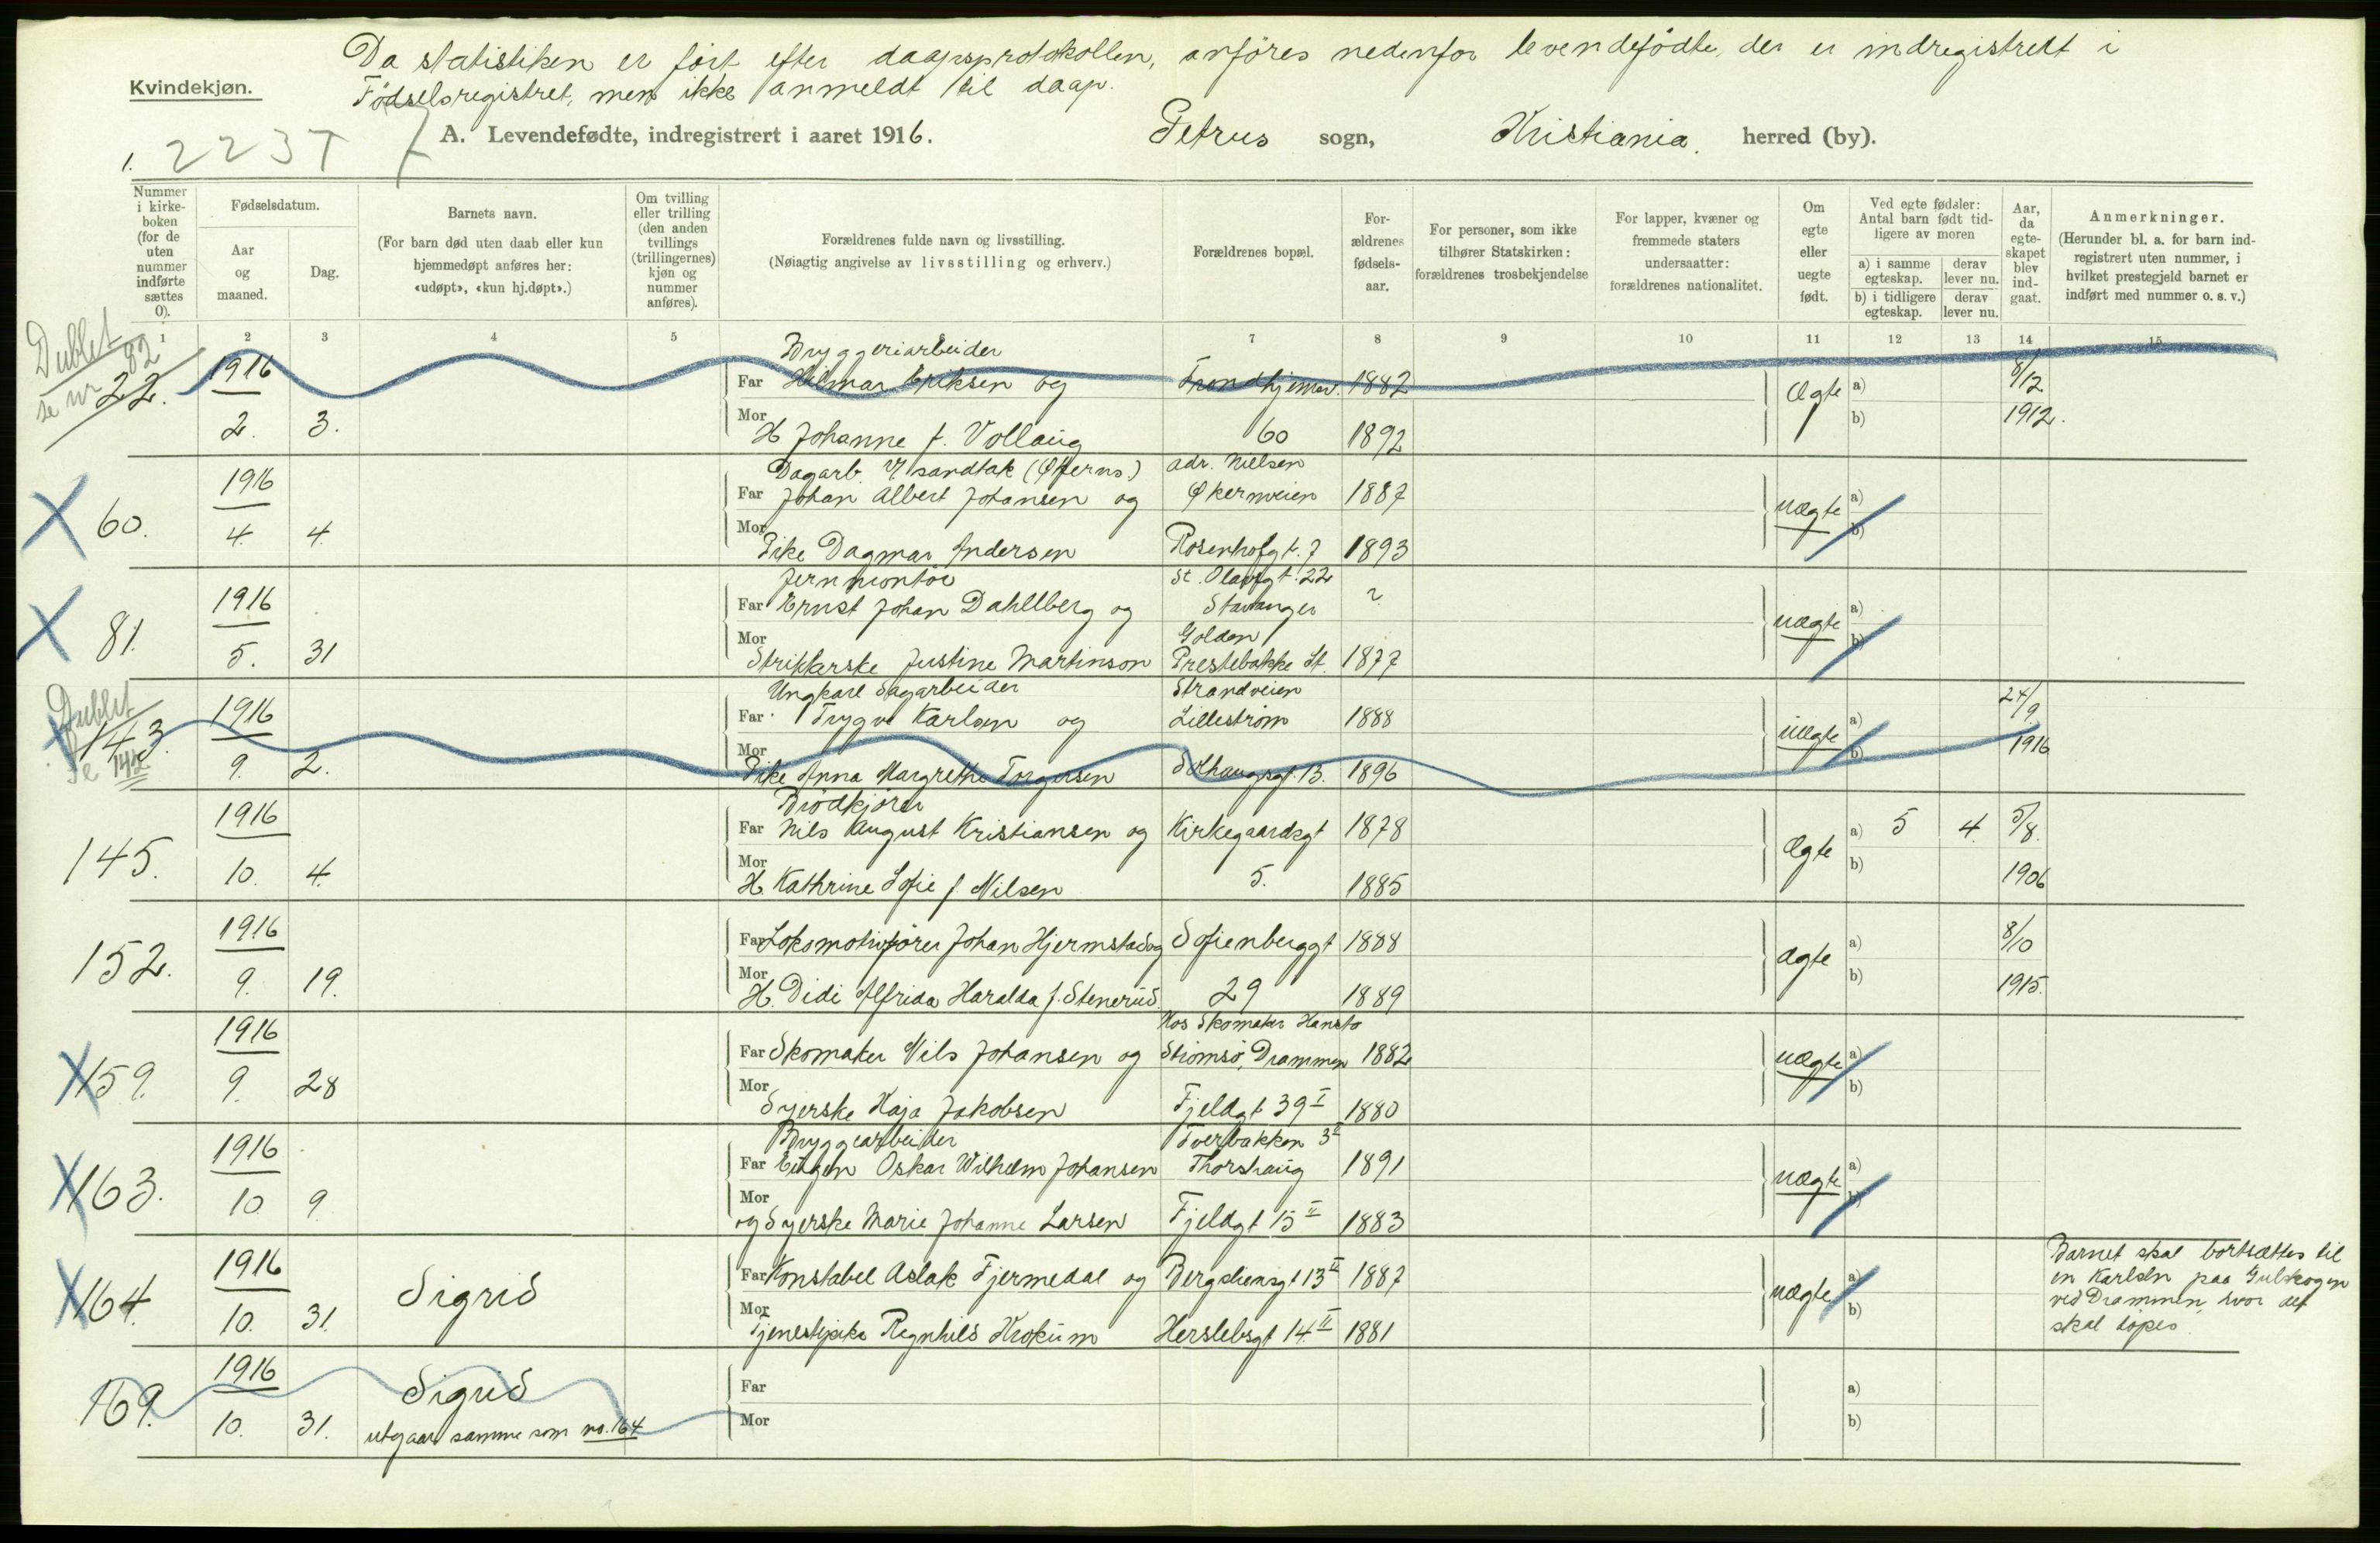 Da statistiken er ført efter daapsprotokollen, anføres nedenfor levendefødte, der er indregistrert i
Fødselsregistret, men ikke anmeldt til daap.
Kvindekjøn.
1. 223 T
A. Levendefødte, indregistrert i aaret 1916. Petrus sogn, Kristiania. herred (by).
Nummer i kirke-boken (for de uten nummer indførte sættes 0).
Fødselsdatum.
Aar og maaned.
Dag.
Barnets navn.
(For barn død uten daab eller kun hjemmedøpt anføres her: «udøpt», «kun hj.døpt».)
Om tvilling eller trilling (den anden tvillings (trillingernes) kjøn og nummer anføres).
Forældrenes fulde navn og livsstilling.
(Nøiagtig angivelse av livsstilling og erhverv.)
Forældrenes bopæl.
For-ældrenes fødsels-aar.
For personer, som ikke tilhører Statskirken: forældrenes trosbekjendelse
For lapper, kvæner og fremmede staters undersaatter: forældrenes nationalitet.
Om egte eller uegte født.
Ved egte fødsler: Antal barn født tid-ligere av moren
a) i samme egteskap. derav lever nu.
b) i tidligere egteskap. derav lever nu.
Aar, da egte-skapet blev ind-gaat.
Anmerkninger.
(Herunder bl. a. for barn ind-registrert uten nummer, i hvilket prestegjeld barnet er indført med nummer o. s. v.)
1 2 3 4 5 7 8 9 10 11 12 13 14 15
Dublet
se nr 82
22. 1916
Bryggeriarbeider
Far Hilmar Eriksen og Trondhjemsv. 1882 Ægte a) 8/12
2. 3. Mor H Johanne f. Vollaug 60 1892 b) 1912.
Dagarb. v/ sandtak adr. Nielsen
60. 1916 Far Johan Albert Johansen og Økernveien 1887 uægte a)
4. 4. Mor Pike Dagmar Andersen Rosenhofgt. 7 1893 b)
Jernmontør St. Olavsgt. 22
81. 1916 Far Ernst Johan Dahllberg og Stavanger ? uægte a)
5. 31 Mor Strikkerske Justine Martinson Golden Prestebakke St. 1877 b)
Dublet
Se 142
Ungkarl Sagarbeider Strandveien
143. 1916 Far Trygve Karlsen og Lillestrøm 1888 uægte a) 24/9
9. 2. Mor Pike Anna Margrethe Torgersen Solhaugsgt. 13. 1896 b) 1916
Brødkjører
145. 1916 Far Nils August Kristiansen og Kirkegaardsgt 1878 Ægte a) 5 4. 5/8.
10. 4. Mor H. Kathrine Sofie f. Nilsen 5. 1885 b) 1906
152. 1916 Far Lokomotivfører Johan Hjermstad og Sofienberggt 1888 Ægte a) 8/10
9. 19. Mor H. Didi Alfrida Haralda f. Stenerud. 29 1889 b) 1915.
Hos Skomaker Hansto
159. 1916 Far Skomaker Nils Johansen og Strømsø, Drammen 1882 uægte a)
9. 28 Mor Syerske Kaja Jakobsen Fjeldgt 39 I 1880 b)
Bryggearbeider Tverbakken 3 II
163. 1916 Far Eugen Oskar Wilhelm Johansen Thorshaug 1891 uægte a)
10. 9. Mor og Syerske Marie Johanne Larsen Fjeldgt 15 II 1883 b)
164. 1916 Sigrid Far Konstabel Aslak Fjermedal og Bergsliensgt 13 II 1887 uægte a)
10. 31. Mor Tjenestepike Ragnhild Krokum Herslebsgt 14 II 1881 b)
Barnet skal bortsættes til
en Karlsen paa Gulskogen
ved Drammen, hvor det
skal døpes.
169. 1916 Sigrid Far a)
10. 31. utgaar samme som no. 164 Mor b)